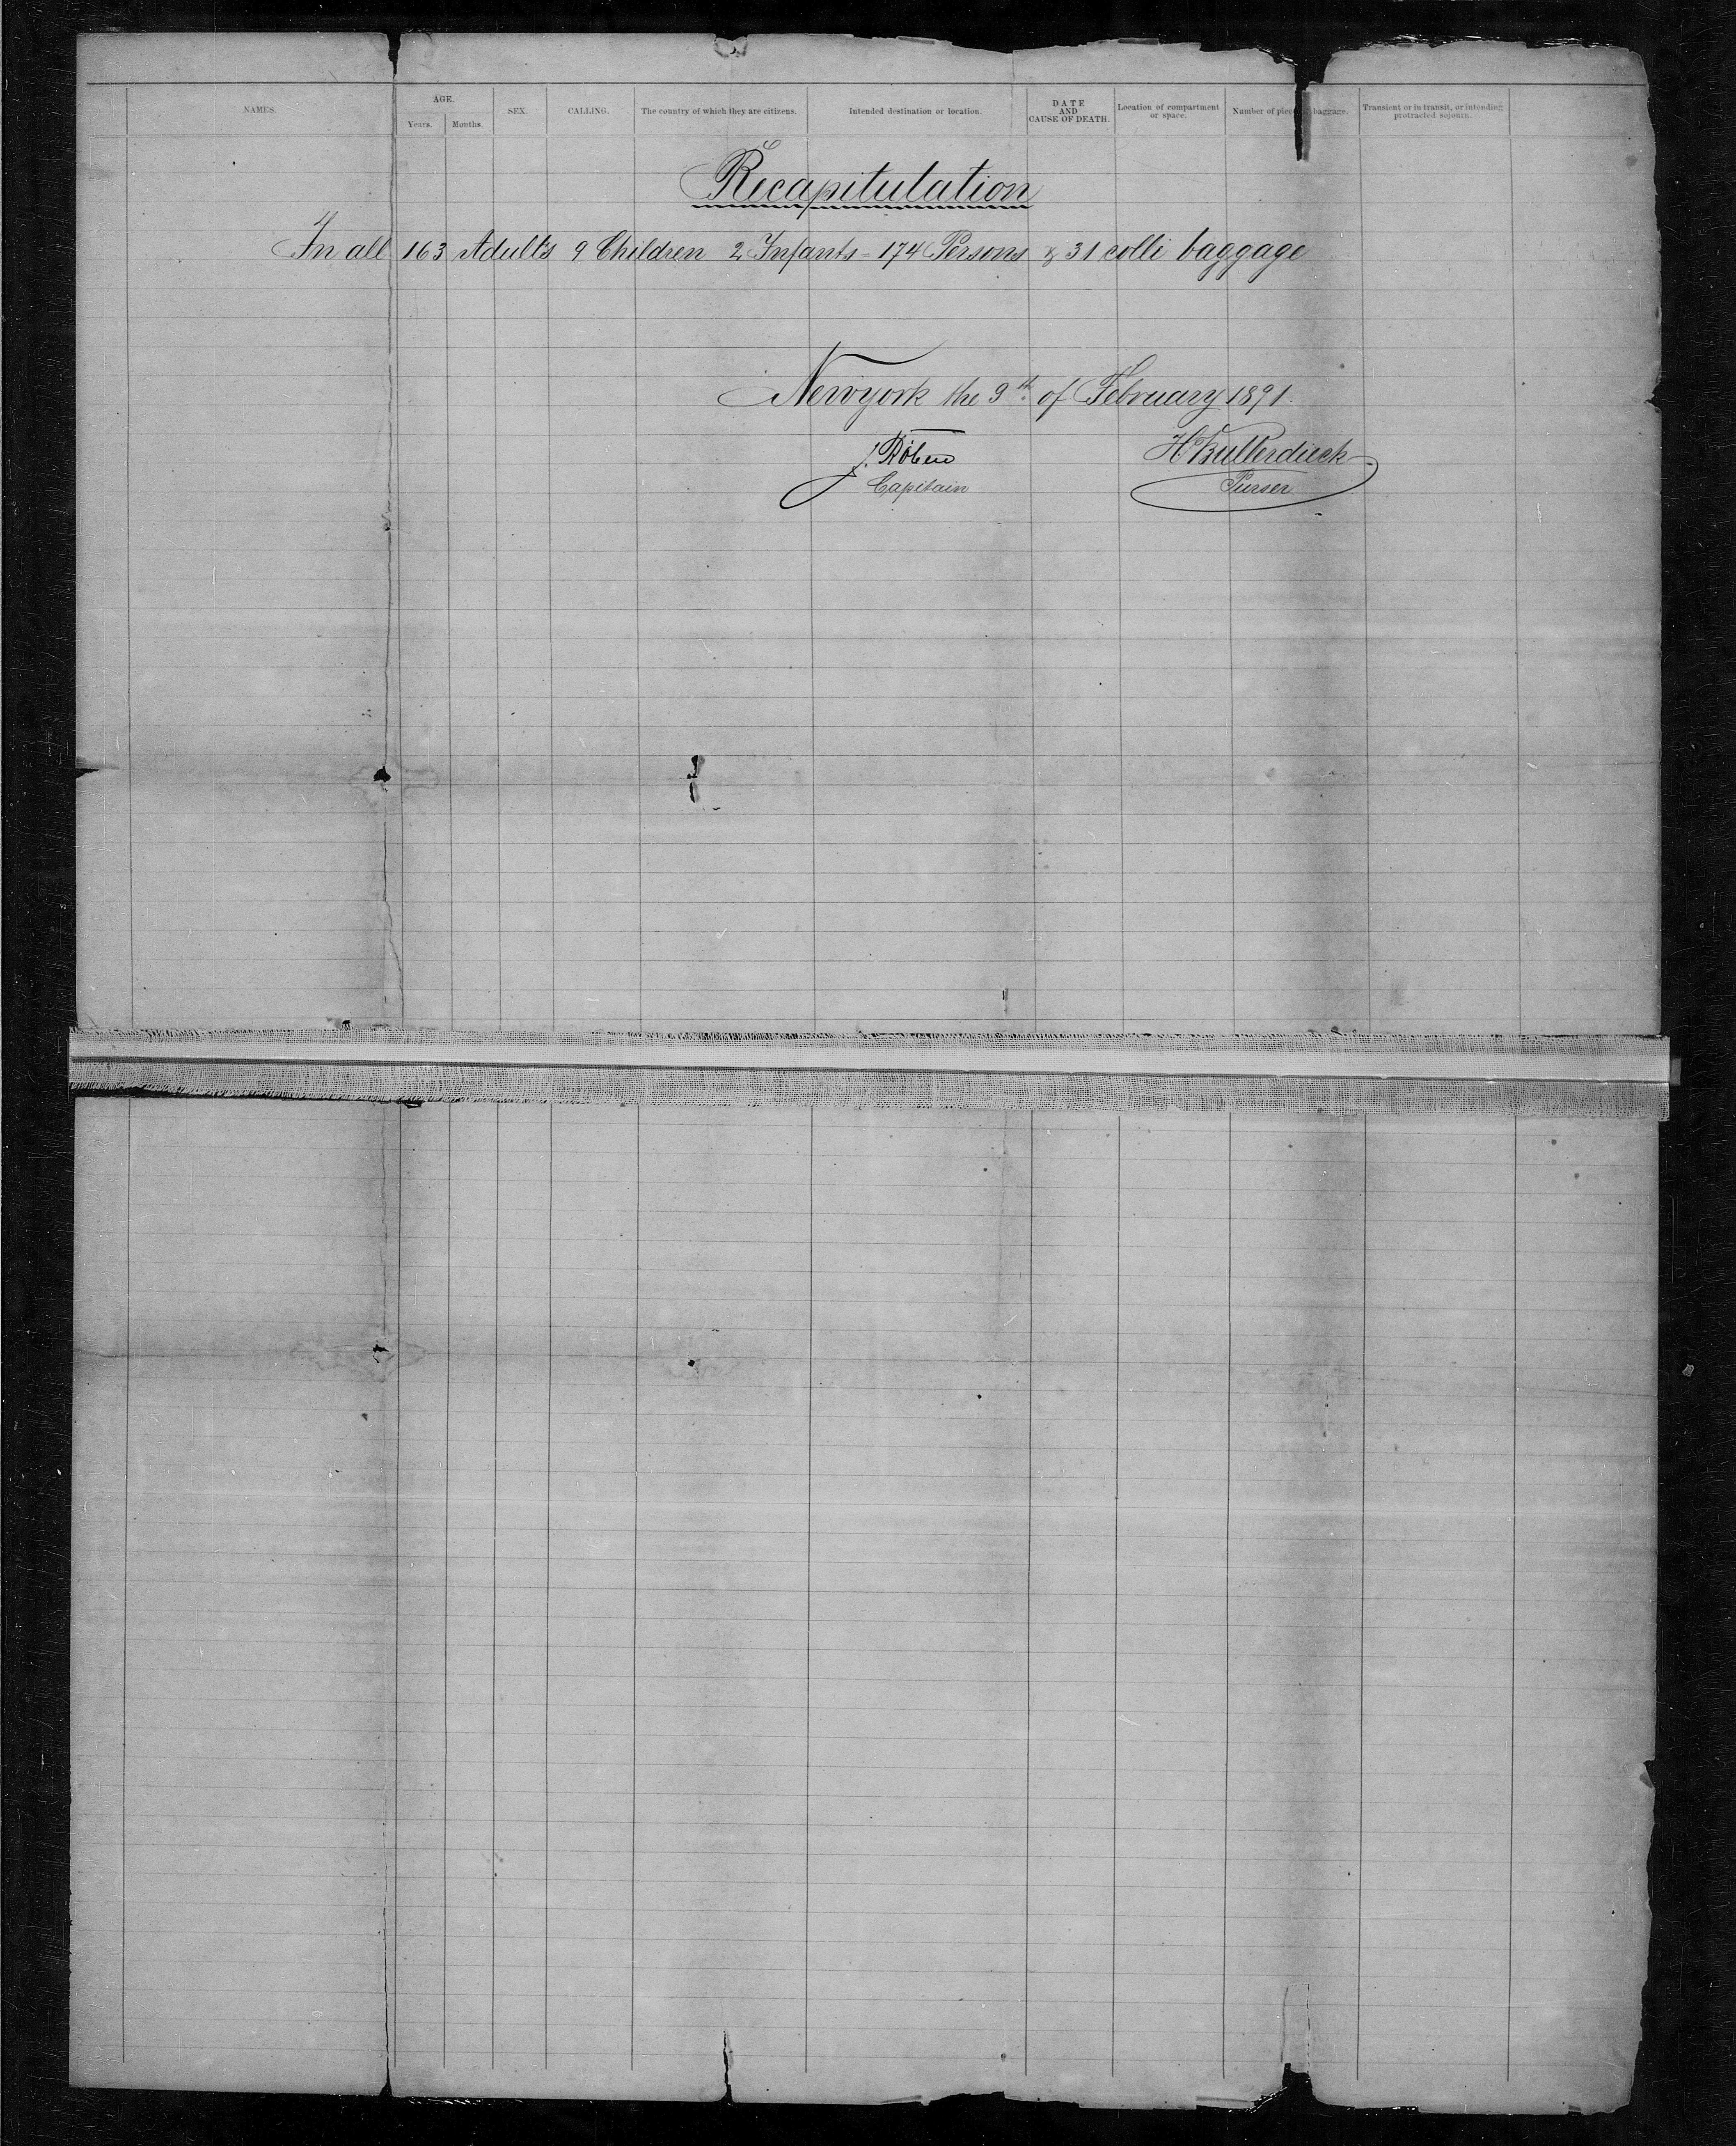 NAMES. AGE. SEX. CALLING. The country of which they are citizens. Intended destination or location. DATE AND CAUSE OF DEATH. Location of compartment or space. Number of baggage. Transient or in transit, or intending protracted sojourn.
Years. Months.
Recapitulation
In all 163 Adults 9 Children 2 Infants = 174 Persons & 31 colli baggage
Newyork the 9th of February 1891.
J.
Capitain Purser